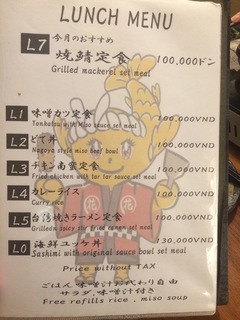 LUNCH MENU
L7 今月のおすすめ
焼鯖定食 100,000ドン
Grilled mackerel set meal
L1 味噌カツ定食 100,000VND
Tonkatsu with Miso sauce set meal
L2 どて丼 100,000VND
Nagoya style miso beef bowl
L3 チキン南蛮定食 100,000VND
Fried chicken with tar tar sauce set meal
L4 カレーライス 100,000VND
Curry rice
L5 台湾焼きラーメン定食 100,000VND
Grilledn spicy stir fried ramen set meal
L0 海鮮ユッケ丼 130,000VND
Sashimi with original sauce bowl set meal
Price without TAX
ごはん味噌汁お代わり自由
サラダ、味噌汁付き
Free refills rice . miso soup